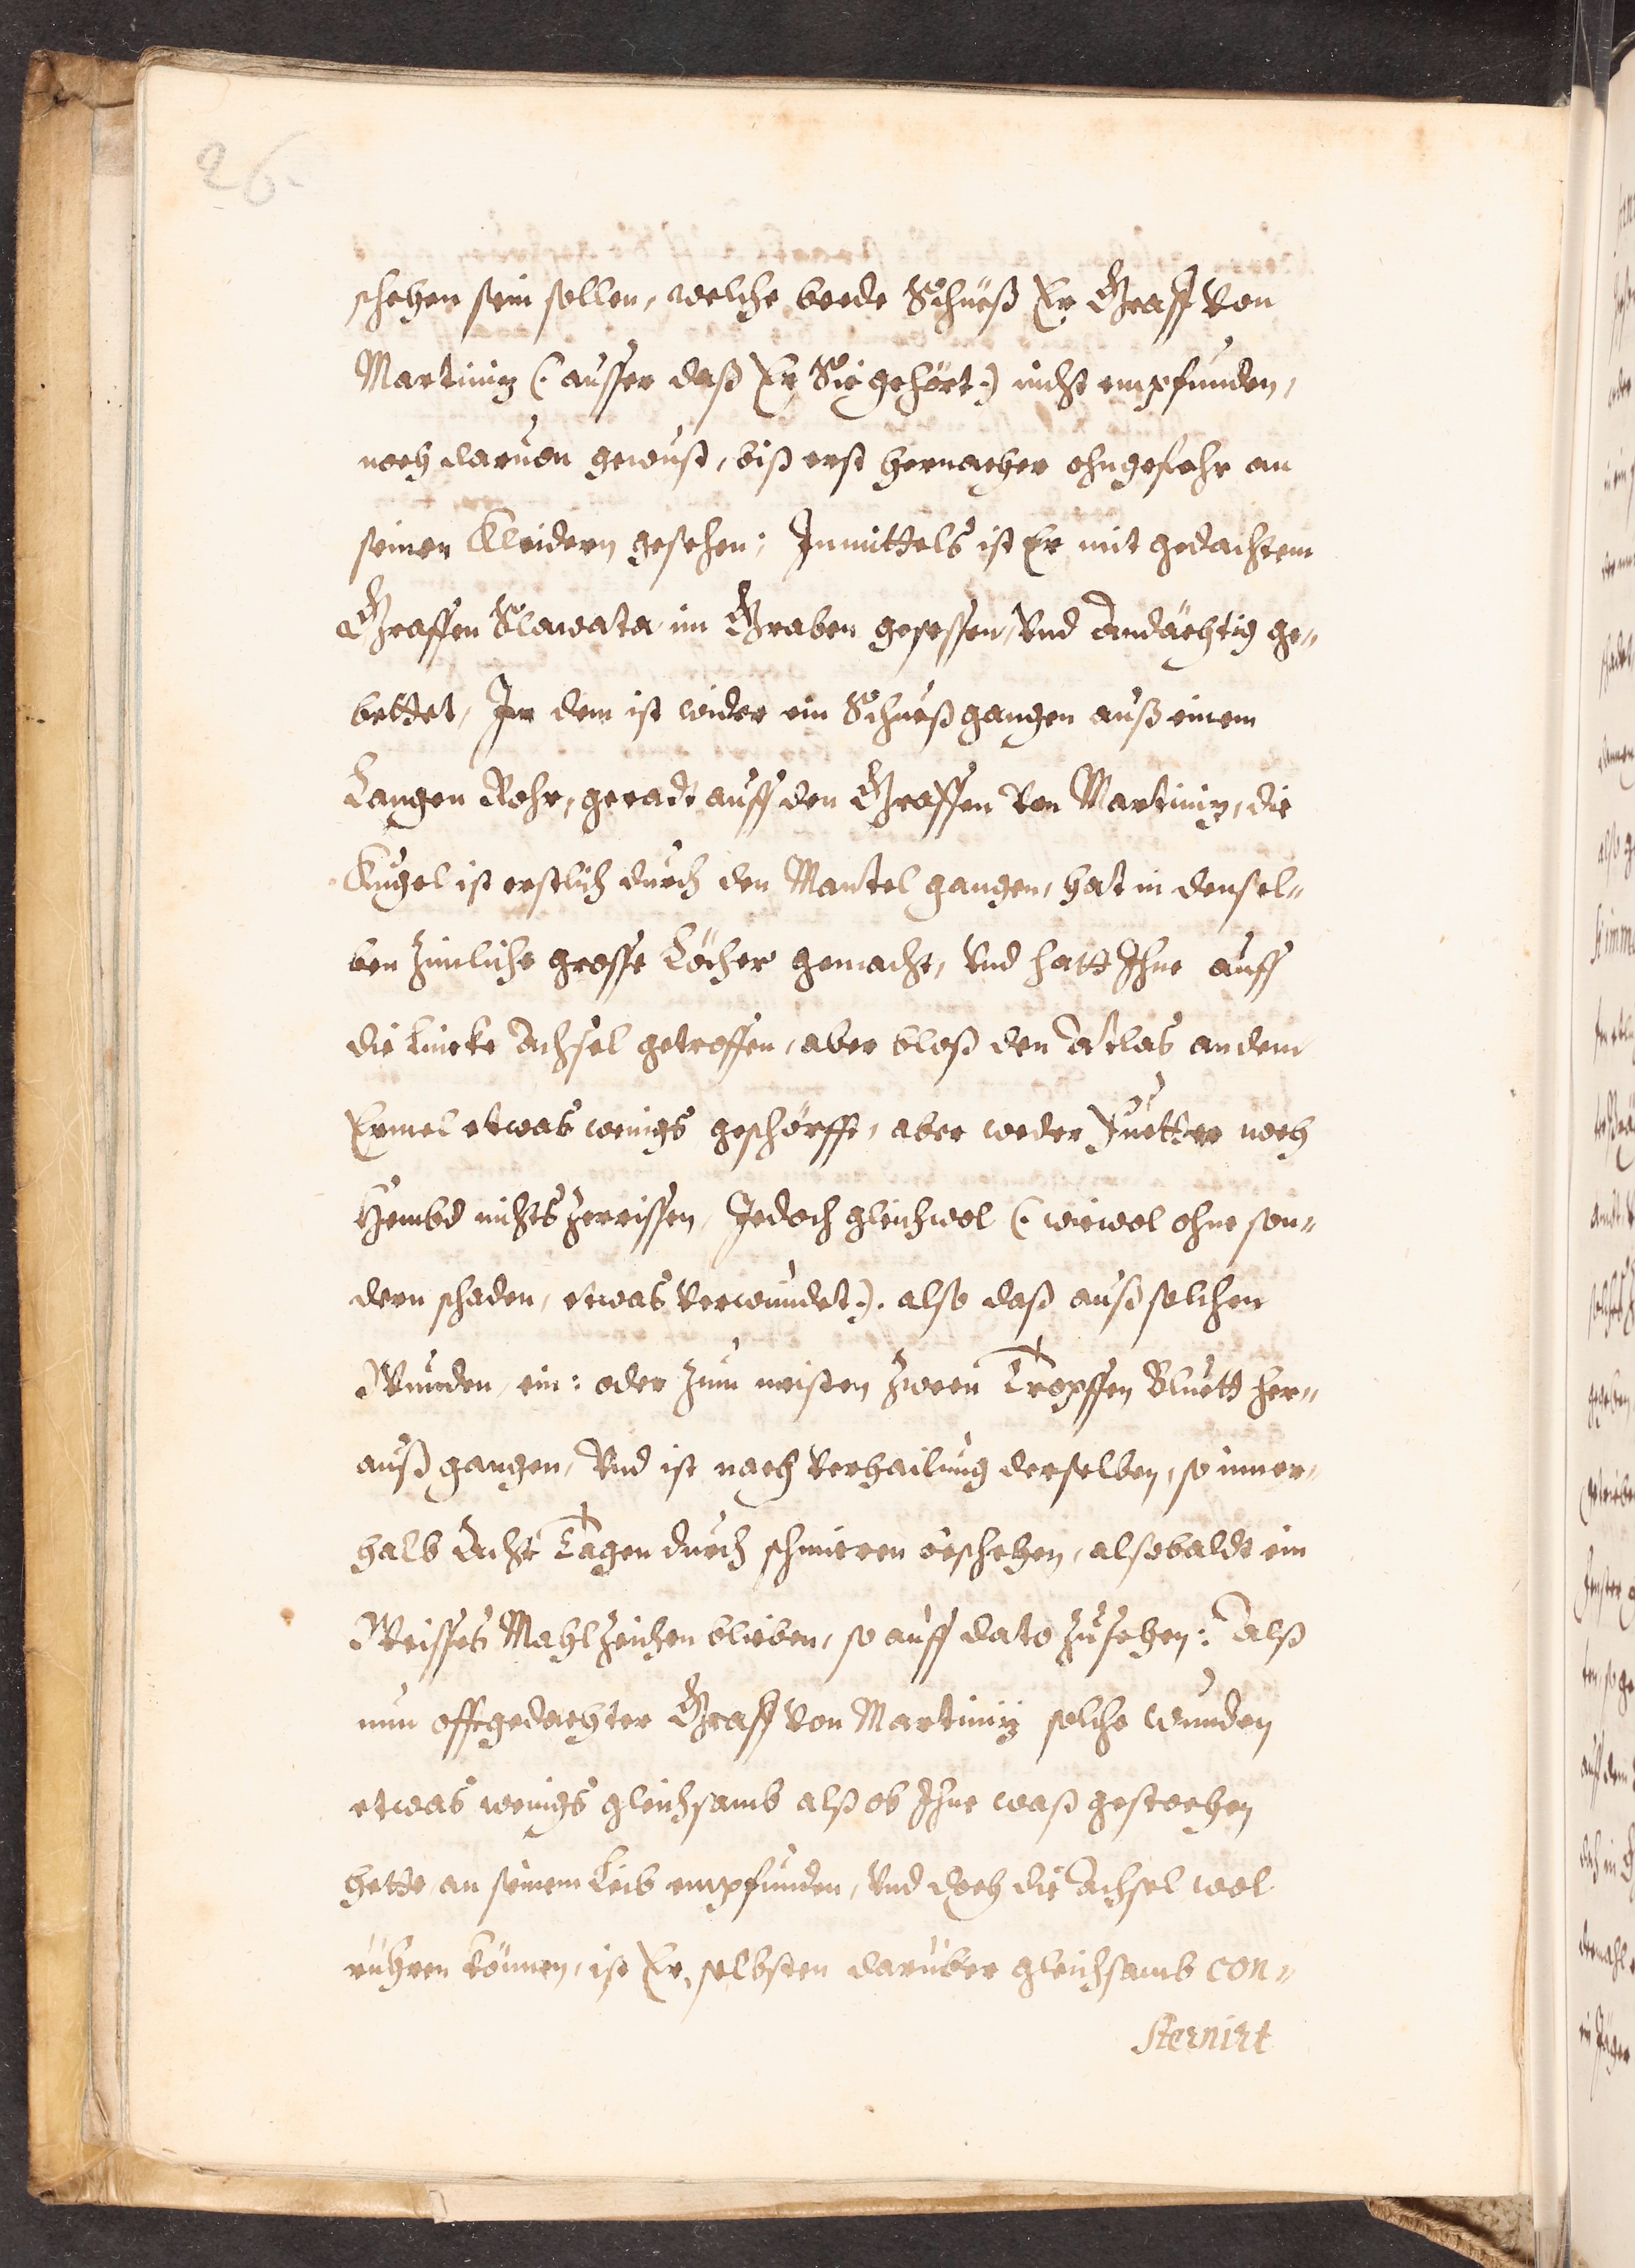 26.
schehen sein sollen, welche beede Schueß Er Graff von
Martiniz (: ausser daß Er Sie gehört :) nicht empfunden,
noch daruon gewust, biß erst hernacher ohngefehr an
seinen Kleidern gesehen; Inmittels ist Er mit gedachtem
Graffen Slawata im Graben gesessen, Vnd Andächtig ge=
bettet, In dem ist wider ein Schueß gangen auß einem
Langen Rohr, geradt auff den Graffen von Martiniz, die
Kugel ist erstlich durch den Mantel gangen, hat in densel=
ben Zimliche grosse Löcher gemacht, Vnd hatt Ihne auff
die Lincke Achsel getroffen, aber bloß den Atlas an dem
Ermel etwas wenigs geschörfft, aber weder Fuetter noch
Hembd nichts Zerrissen, Jedoch gleichwol (: wiewol ohne son=
dern schaden, etwas verwundet :). also daß auß solchen
Wunden, ein: oder Zum meisten Zween Tropffen Bluett her=
auß gangen, Vnd ist nach verhailung derselben, so inner=
halb Acht Tagen durch schmieren beschehen, alsobaldt ein
Weisses Mahlzeichen blieben, so auff dato Zusehen: Alß
nun offtgedachter Graff von Martiniz solche Wunden
etwas wenigs gleichsamb alß ob Ihne waß gestochen
hette an seinem Leib empfunden, Vnd doch die Achsel wol
rühren können, ist Er selbsten darüber gleichsamb con=
sternirt